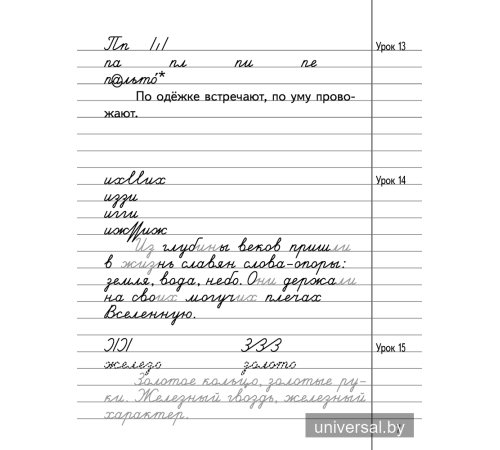 Пп
Урок 13
па пл пи пе
п@льто́*
По одёжке встречают, по уму прово-
жают.
Урок 14
иззи
игги
Из глубины веков пришли
в жизнь славян слова-опоры:
земля, вода, небо. Они держали
на своих могучих плечах
Вселенную.
Урок 15
железо золото
Золотое кольцо, золотые ру-
ки. Железный гвоздь, железный
характер.
universal.by